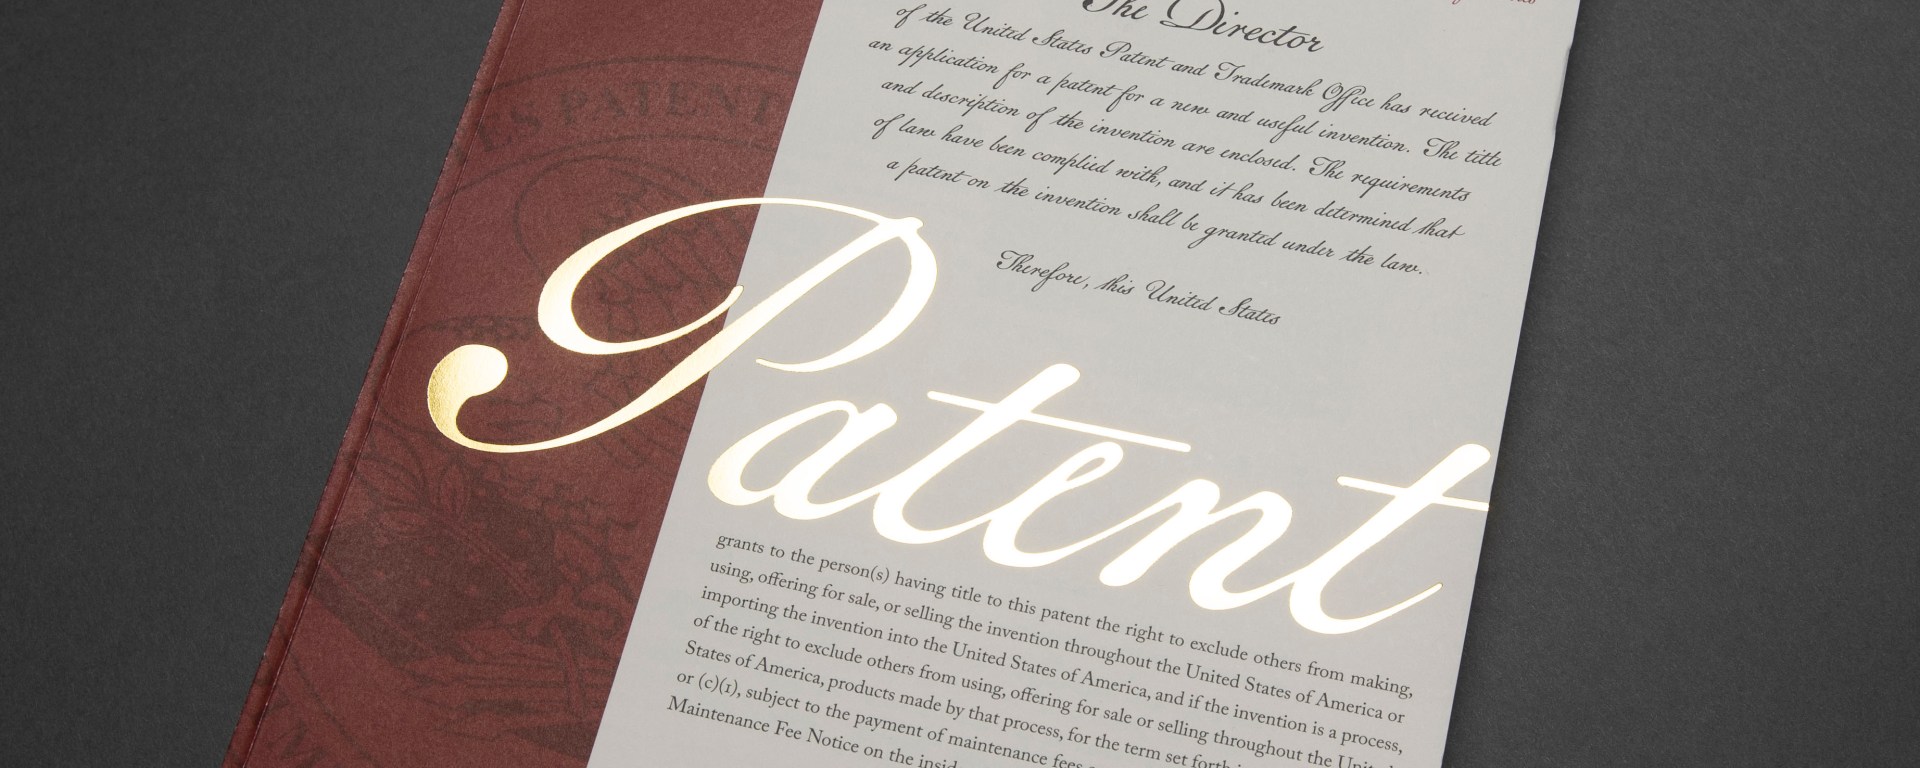 The Director
of the United States Patent and Trademark Office has received
an application for a patent for a new and useful invention. The title
and description of the invention are enclosed. The requirements
of law have been complied with, and it has been determined that
a patent on the invention shall be granted under the law.
Therefore, this United States
Patent
grants to the person(s) having title to this patent the right to exclude others from making,
using, offering for sale, or selling the invention throughout the United States of America or
importing the invention into the United States of America, and if the invention is a process,
of the right to exclude others from using, offering for sale or selling throughout the United
States of America, products made by that process, for the term set forth
or (c)(1), subject to the payment of maintenance fees
Maintenance Fee Notice on the
PATENT